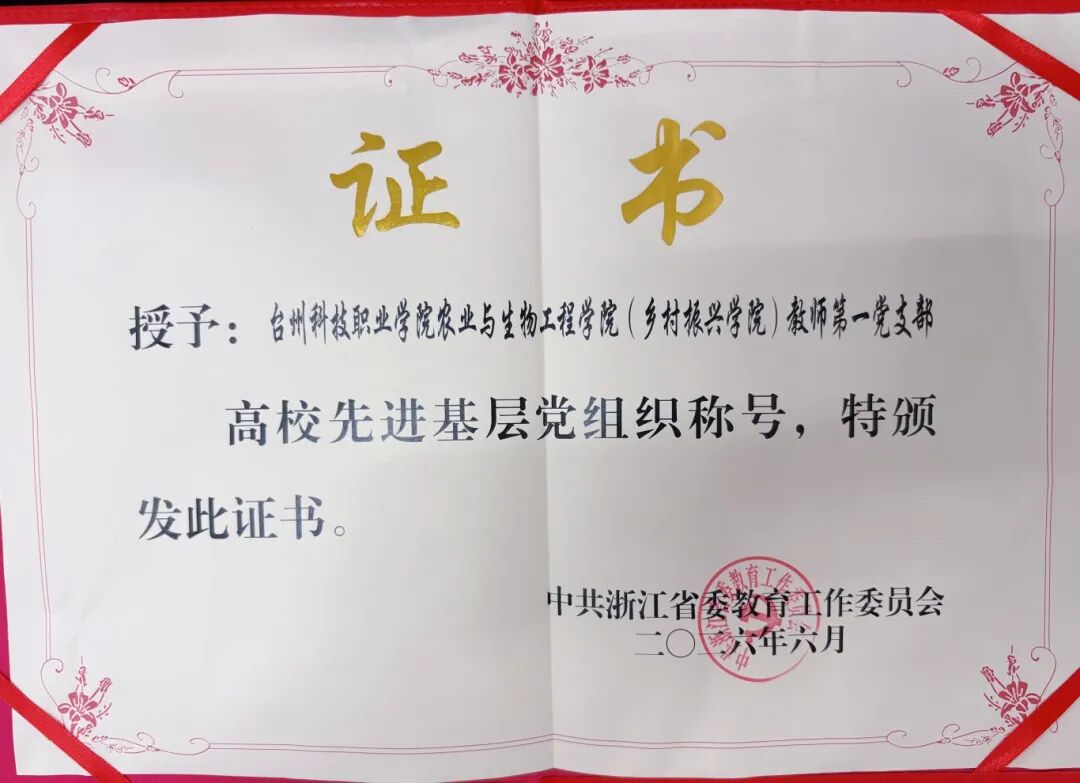 证 书
授予：台州科技职业学院农业与生物工程学院（乡村振兴学院）教师第一党支部
高校先进基层党组织称号，特颁
发此证书。
中共浙江省委教育工作委员会
二〇二六年六月
中共浙江省委教育工作委员会